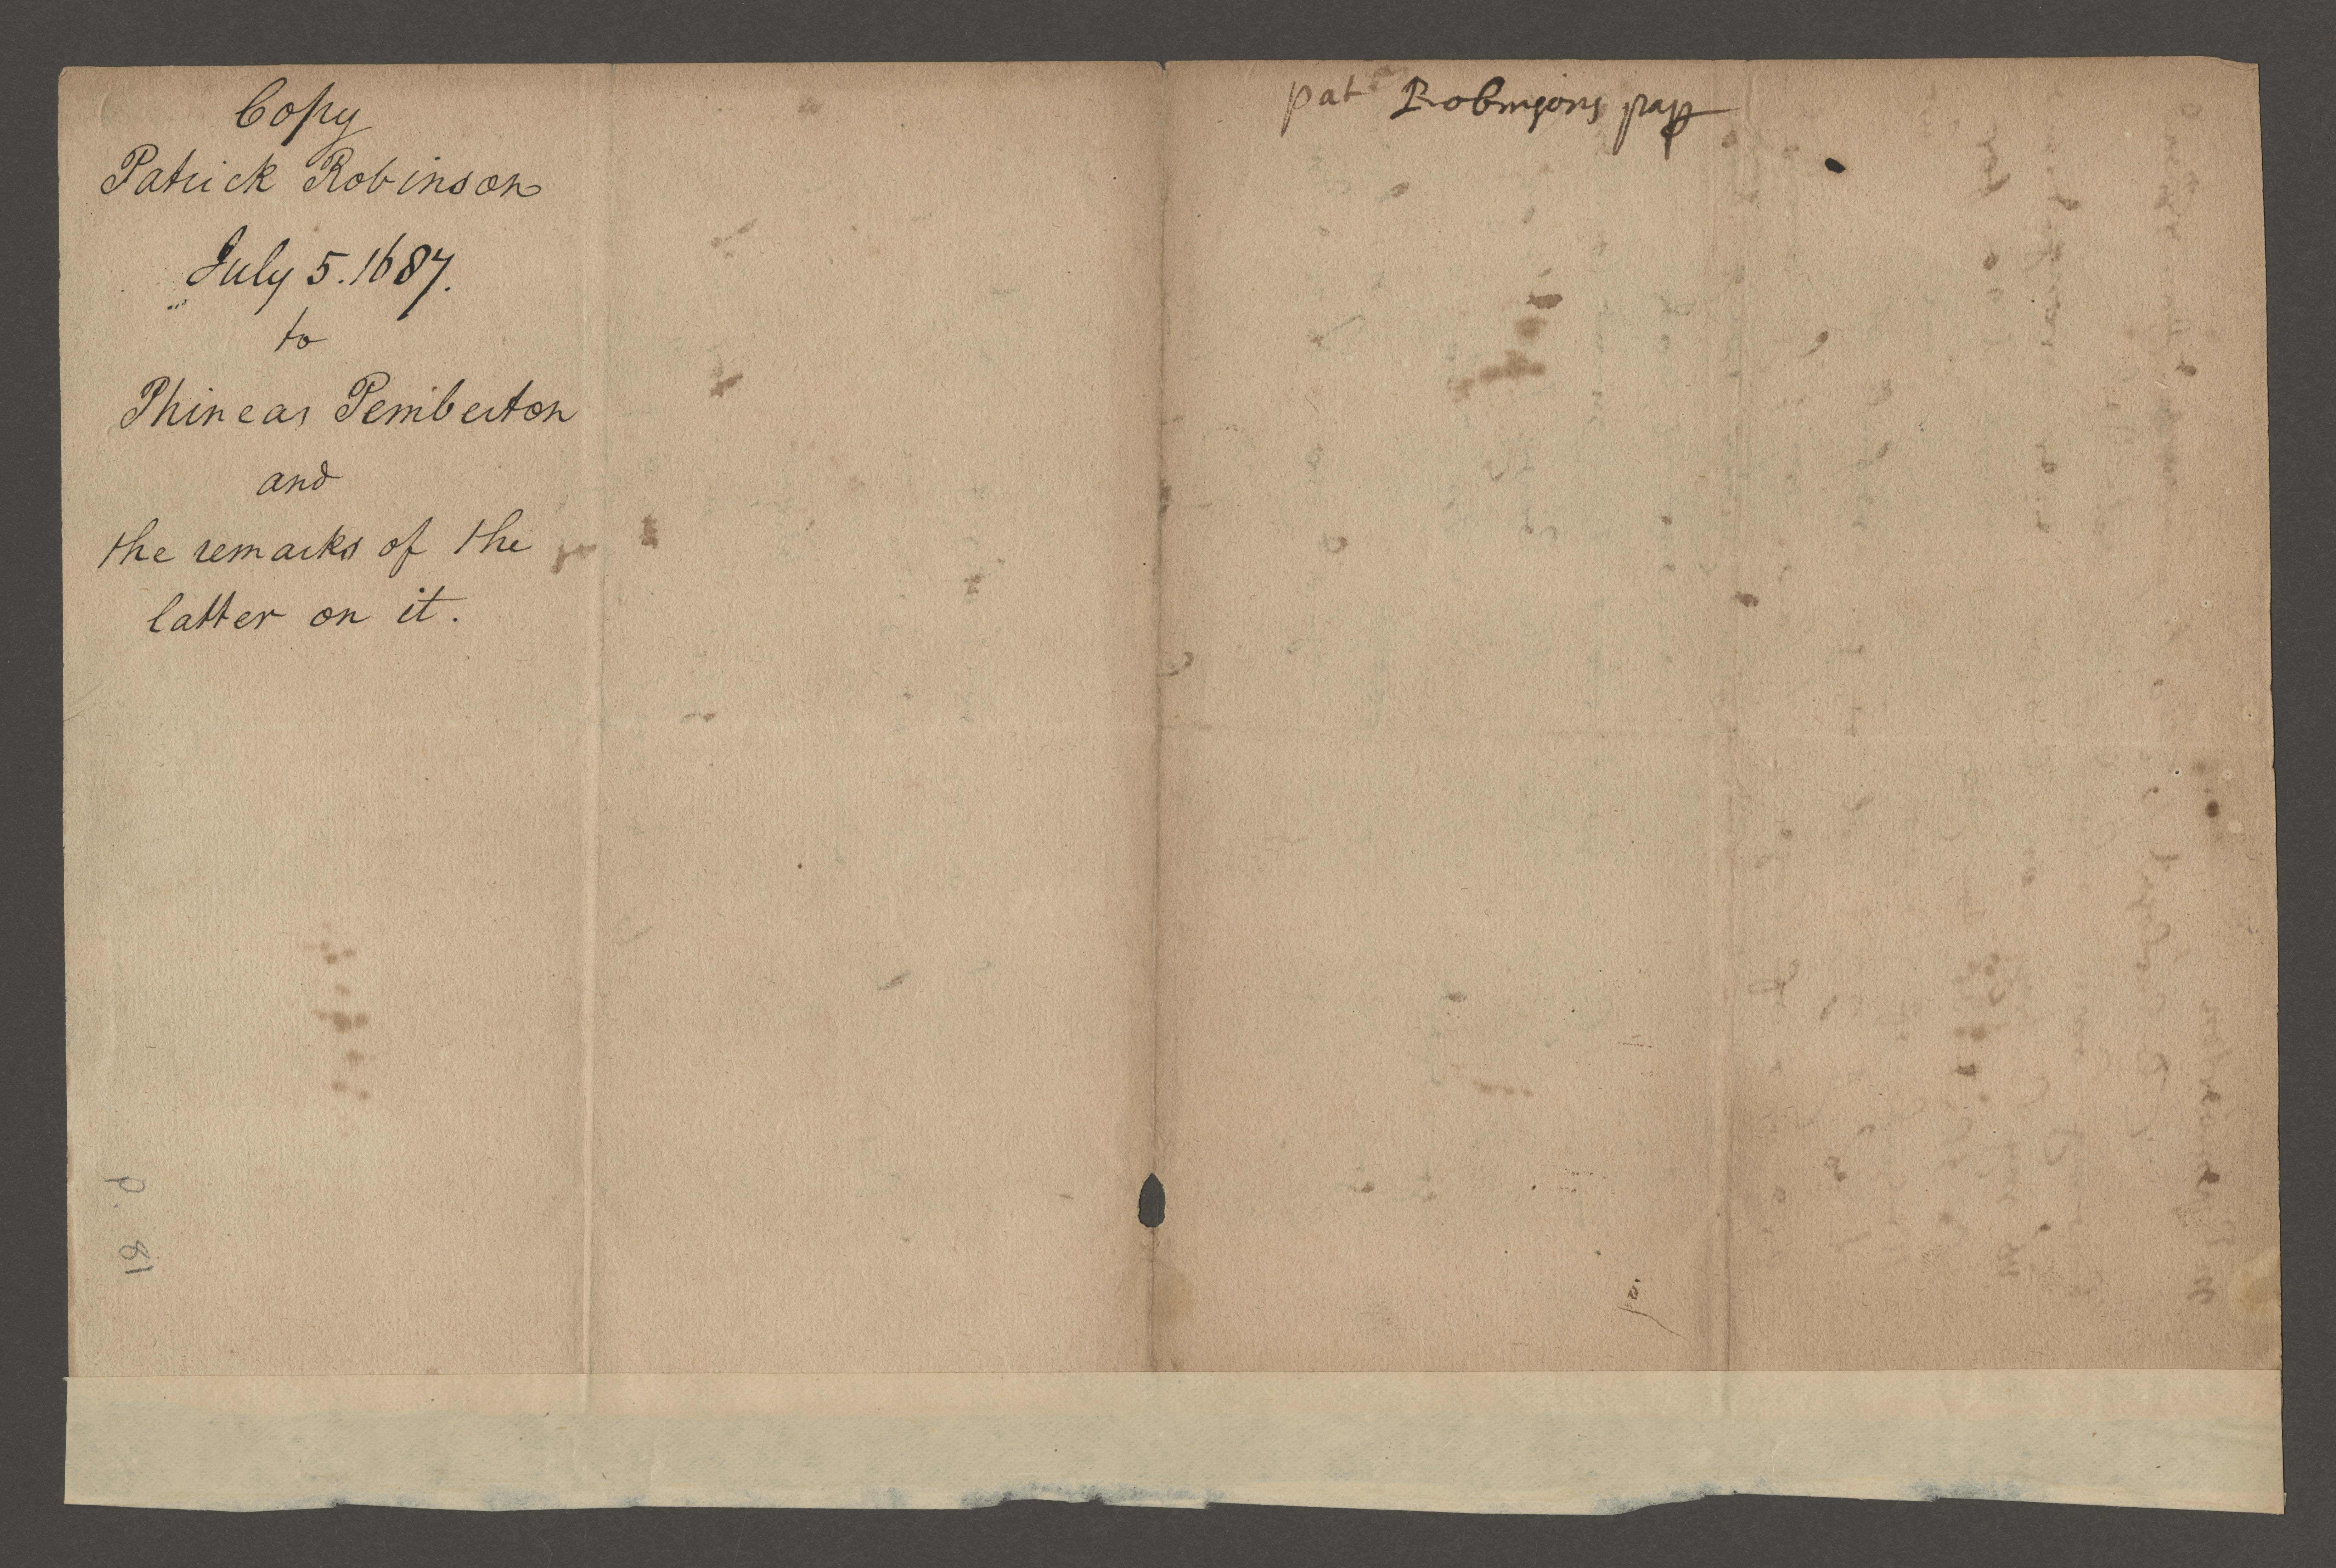 Copy
Patrick Robinson
July 5. 1687.
to
Phineas Pemberton
and
the remarks of the
latter on it.
p. 81
pat Robinsons pap